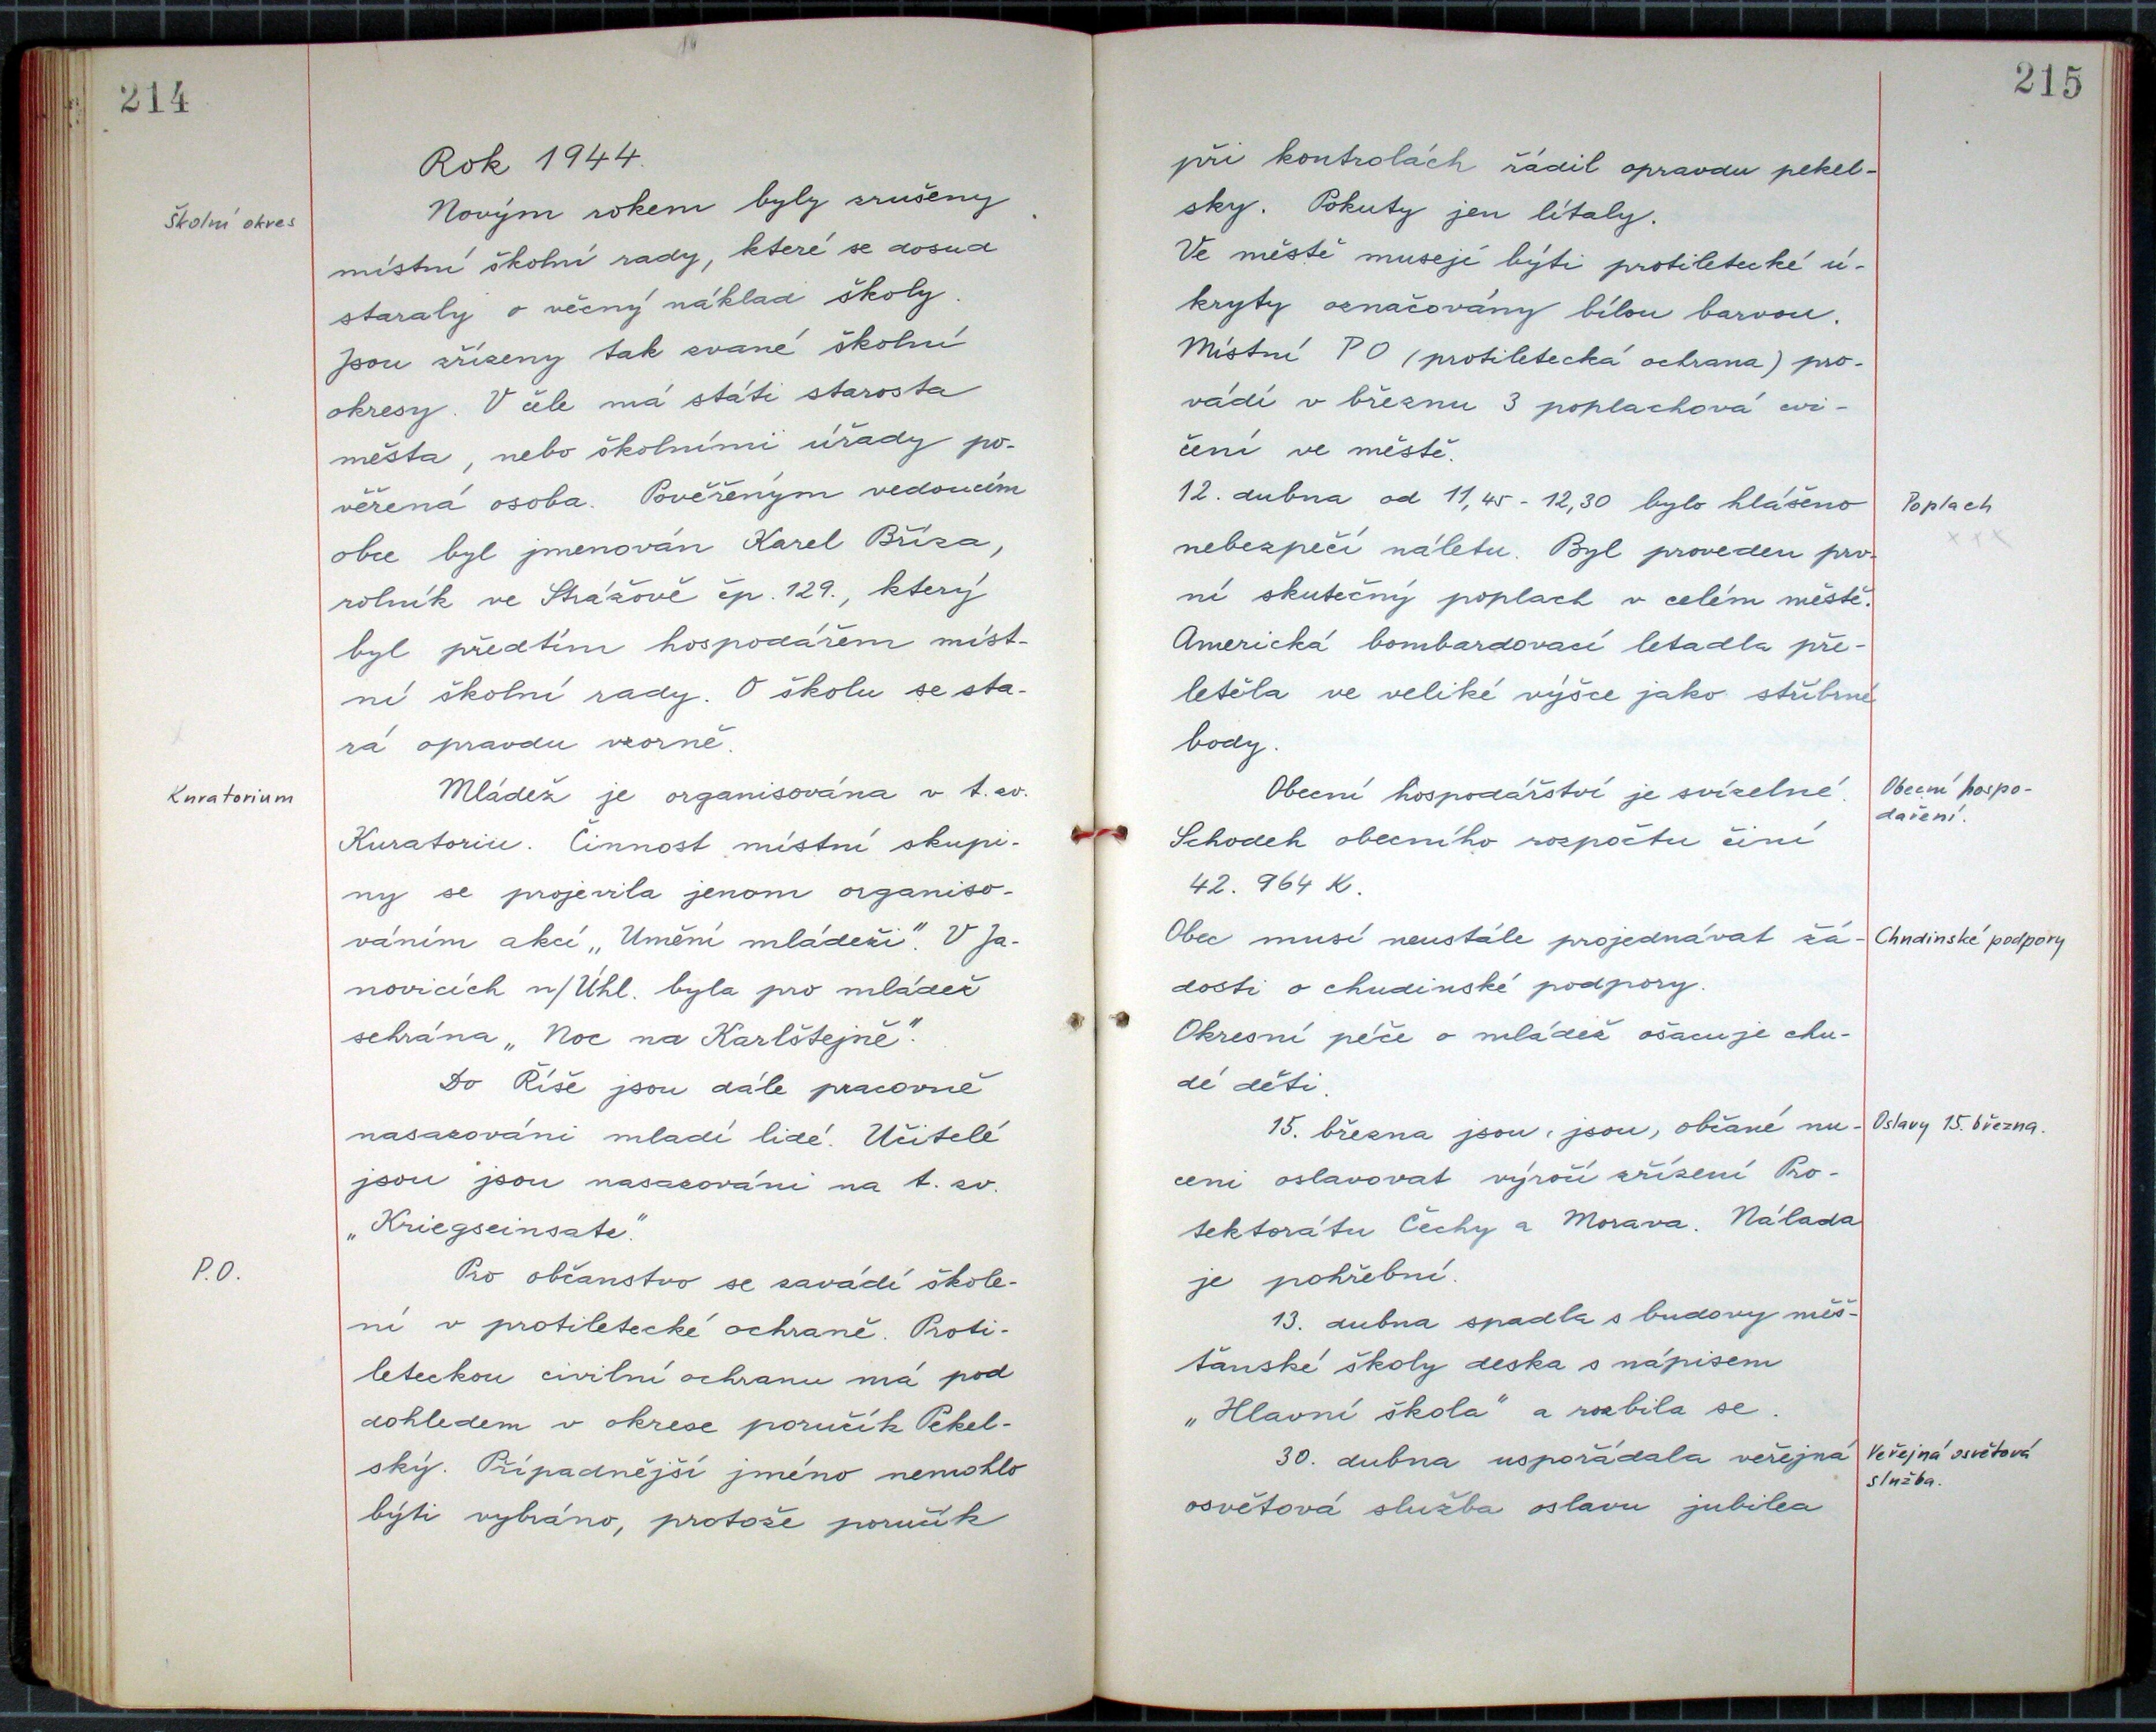 214
Rok 1944.
Školní okres
Novým rokem byly zrušeny
místní školní rady, které se dosud
staraly o věcný náklad školy.
Jsou zřízeny tak zvané školní
okresy. V čele má státi starosta
města, nebo školními úřady po-
věřená osoba. Pověřeným vedoucím
obce byl jmenován Karel Bříza,
rolník ve Strážově čp. 129., který
byl předtím hospodářem míst-
ní školní rady. O školu se sta-
rá opravdu vzorně.
Kuratorium
Mládež je organisována v t.zv.
Kuratoriu. Činnost místní skupi-
ny se projevila jenom organiso-
váním akcí „Umění mládeži". V Ja-
novicích n/Úhl. byla pro mládež
sehrána „Noc na Karlštejně".
Do Říše jsou dále pracovně
nasazováni mladí lidé. Učitelé
jsou jsou nasazováni na t. zv.
„Kriegseinsatz".
P.O.
Pro občanstvo se zavádí škole-
ní v protiletecké ochraně. Proti-
leteckou civilní ochranu má pod
dohledem v okrese poručík Pekel-
ský. Případnější jméno nemohlo
býti vybráno, protože poručík
215
při kontrolách řádil opravdu pekel-
sky. Pokuty jen lítaly.
Ve městě musejí býti protiletecké ú-
kryty označovány bílou barvou.
Místní P O (protiletecká ochrana) pro-
vádí v březnu 3 poplachová cvi-
čení ve městě.
12. dubna od 11,45 - 12,30 bylo hlášeno
Poplach
nebezpečí náletu. Byl proveden prv-
ní skutečný poplach v celém městě.
Americká bombardovací letadla pře-
letěla ve veliké výšce jako stříbrné
body.
Obecní hospodářství je svízelné.
Obecní hospo-
daření.
Schodek obecního rozpočtu činí
42. 964 K.
Obec musí neustále projednávat žá-
Chudinské podpory
dosti o chudinské podpory.
Okresní péče o mládež ošacuje chu-
dé děti.
15. března jsou, jsou, občané nu-
Oslavy 15. března.
ceni oslavovat výročí zřízení Pro-
tektorátu Čechy a Morava. Nálada
je pohřební.
13. dubna spadla s budovy měš-
ťanské školy deska s nápisem
„Hlavní škola" a rozbila se.
30. dubna uspořádala veřejná
Veřejná osvětová
služba.
osvětová služba oslavu jubilea